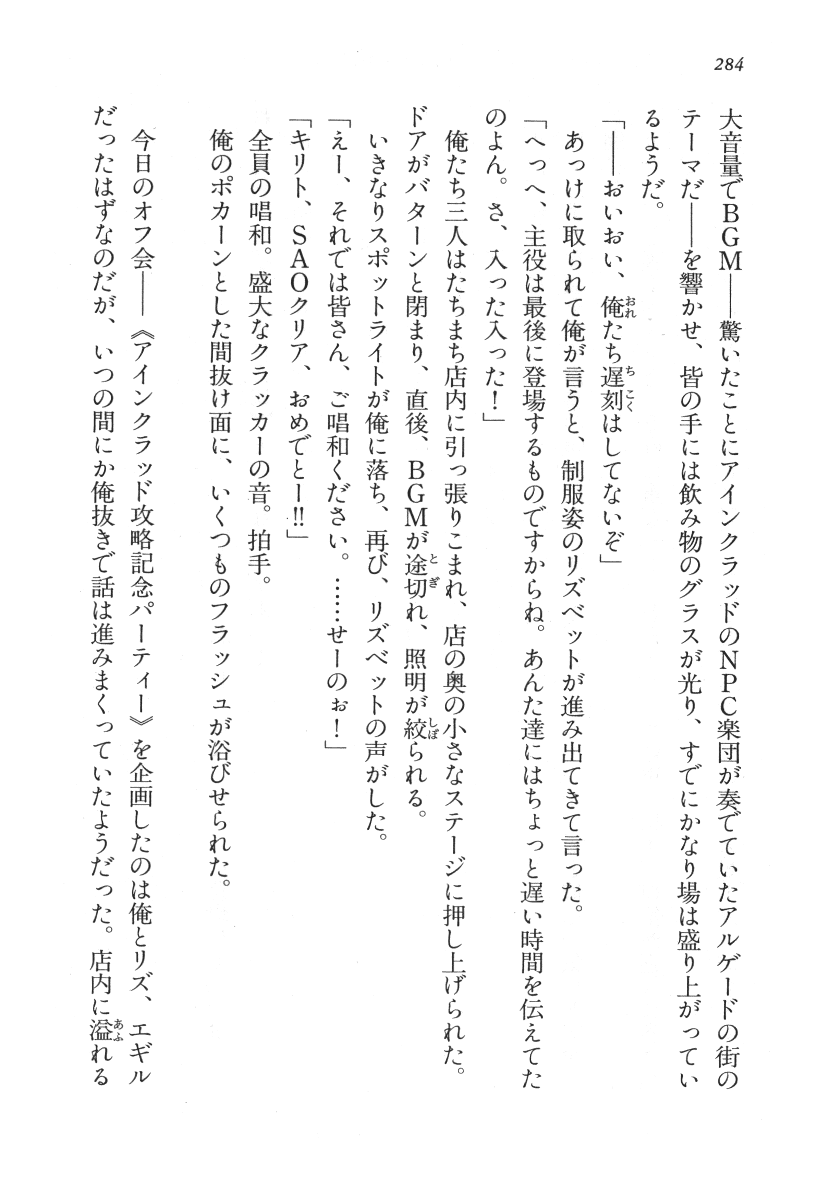 284
大音量でBGM――驚いたことにアインクラッドのNPC楽団が奏でていたアルゲードの街の
テーマだ――を響かせ、皆の手には飲み物のグラスが光り、すでにかなり場は盛り上がってい
るようだ。
「――おいおい、俺たち遅刻はしてないぞ」
あっけに取られて俺が言うと、制服姿のリズベットが進み出てきて言った。
「へっへ、主役は最後に登場するものですからね。あんた達にはちょっと遅い時間を伝えてた
のよん。さ、入った入った！」
俺たち三人はたちまち店内に引っ張りこまれ、店の奥の小さなステージに押し上げられた。
ドアがバターンと閉まり、直後、BGMが途切れ、照明が絞られる。
いきなりスポットライトが俺に落ち、再び、リズベットの声がした。
「えー、それでは皆さん、ご唱和ください。……せーのぉ！」
「キリト、SAOクリア、おめでとー!!」
全員の唱和。盛大なクラッカーの音。拍手。
俺のポカーンとした間抜け面に、いくつものフラッシュが浴びせられた。
今日のオフ会――《アインクラッド攻略記念パーティー》を企画したのは俺とリズ、エギル
だったはずなのだが、いつの間にか俺抜きで話は進みまくっていたようだった。店内に溢れる